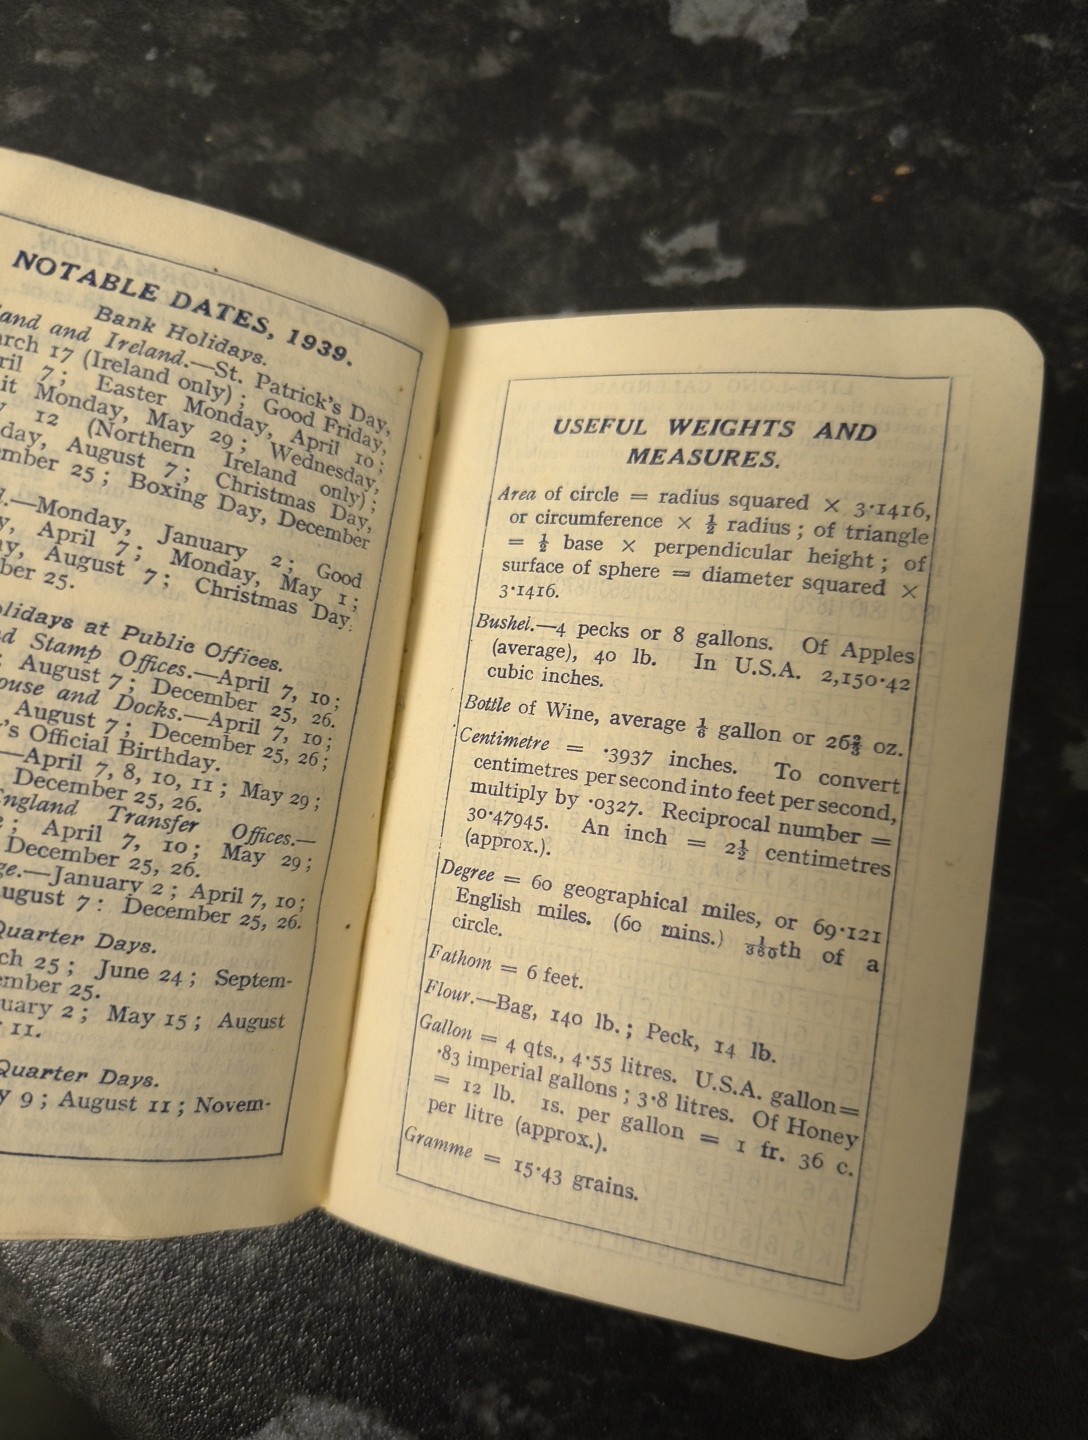 NOTABLE DATES, 1939.
Bank Holidays.
and and Ireland.—St. Patrick's Day,
arch 17 (Ireland only); Good Friday,
ril 7; Easter Monday, April 10;
it Monday, May 29; Wednesday,
y 12 (Northern Ireland only);
day, August 7; Christmas Day,
mber 25; Boxing Day, December
.—Monday, January 2; Good
y, April 7; Monday, May 1;
ay, August 7; Christmas Day,
ber 25.
olidays at Public Offices.
d Stamp Offices.—April 7, 10;
; August 7; December 25, 26.
ouse and Docks.—April 7, 10;
August 7; December 25, 26;
's Official Birthday.
—April 7, 8, 10, 11; May 29;
December 25, 26.
England Transfer Offices.—
; April 7, 10; May 29;
December 25, 26.
ge.—January 2; April 7, 10;
ugust 7: December 25, 26.
Quarter Days.
ch 25; June 24; Septem-
ember 25.
uary 2; May 15; August
11.
Quarter Days.
y 9; August 11; Novem-
USEFUL WEIGHTS AND
MEASURES.
Area of circle = radius squared × 3·1416,
or circumference × ½ radius; of triangle
= ½ base × perpendicular height; of
surface of sphere = diameter squared ×
3·1416.
Bushel.—4 pecks or 8 gallons. Of Apples
(average), 40 lb. In U.S.A. 2,150·42
cubic inches.
Bottle of Wine, average ⅙ gallon or 26⅔ oz.
Centimetre = ·3937 inches. To convert
centimetres per second into feet per second,
multiply by ·0327. Reciprocal number =
30·47945. An inch = 2½ centimetres
(approx.).
Degree = 60 geographical miles, or 69·121
English miles. (60 mins.) 1/360th of a
circle.
Fathom = 6 feet.
Flour.—Bag, 140 lb.; Peck, 14 lb.
Gallon = 4 qts., 4·55 litres. U.S.A. gallon=
·83 imperial gallons; 3·8 litres. Of Honey
= 12 lb. 1s. per gallon = 1 fr. 36 c.
per litre (approx.).
Gramme = 15·43 grains.